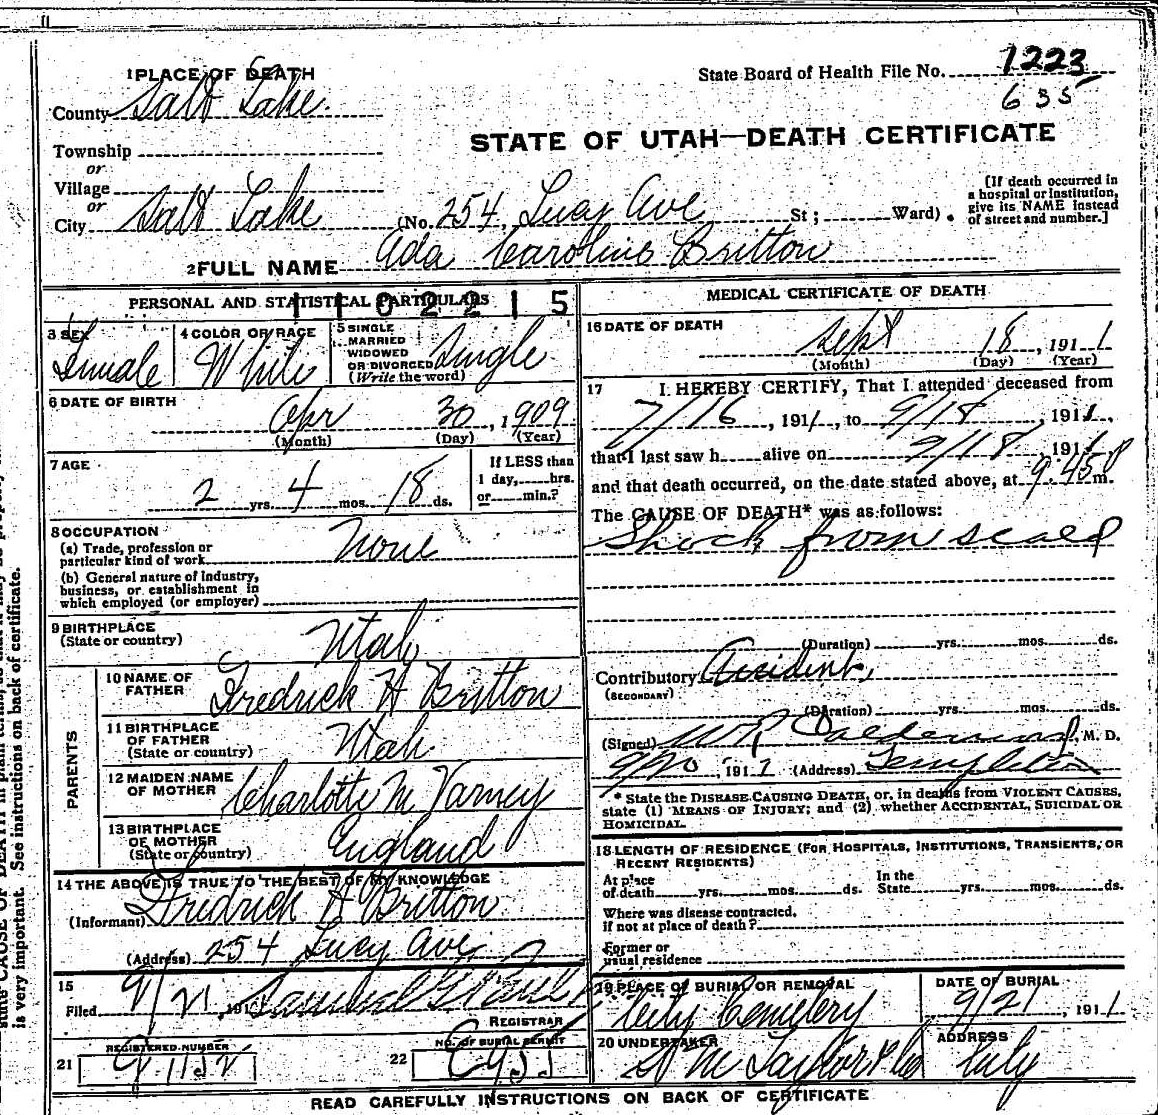 11
1 PLACE OF DEATH
State Board of Health File No. 1223
County Salt Lake.
635
STATE OF UTAH—DEATH CERTIFICATE
Township
or
Village
or
City Salt Lake (No. 254, Lucy Ave St; Ward).
[If death occurred in a hospital or institution, give its NAME instead of street and number.]
2 FULL NAME Ada Caroline Britton
PERSONAL AND STATISTICAL PARTICULARS
1102215
3 SEX Female
4 COLOR OR RACE White
5 SINGLE MARRIED WIDOWED OR DIVORCED (Write the word) Single
6 DATE OF BIRTH
Apr 30, 1909
(Month) (Day) (Year)
7 AGE
2 yrs. 4 mos. 18 ds.
If LESS than 1 day, hrs. or min.?
8 OCCUPATION
(a) Trade, profession or particular kind of work None
(b) General nature of Industry, business, or establishment in which employed (or employer)
9 BIRTHPLACE (State or country) Utah
PARENTS
10 NAME OF FATHER Fredrick H Britton
11 BIRTHPLACE OF FATHER (State or country) Utah
12 MAIDEN NAME OF MOTHER Charlotte M Varney
13 BIRTHPLACE OF MOTHER (State or country) England
14 THE ABOVE IS TRUE TO THE BEST OF MY KNOWLEDGE
(Informant) Fredrick H Britton
(Address) 254 Lucy Ave
15
Filed 9/21 191
REGISTRAR
21 REGISTERED NUMBER
22 NO. OF BURIAL PERMIT
MEDICAL CERTIFICATE OF DEATH
16 DATE OF DEATH
Sept 18, 1911
(Month) (Day) (Year)
17 I HEREBY CERTIFY, That I attended deceased from
7/16, 1911, to 9/18, 1911,
that I last saw h alive on 9/18, 1911
and that death occurred, on the date stated above, at 9.45 P m.
The CAUSE OF DEATH* was as follows:
Shock from scald
(Duration) yrs. mos. ds.
Contributory Accident,
(SECONDARY)
(Duration) yrs. mos. ds.
(Signed) M. D.
9/20, 1911 (Address) Templeton
* State the DISEASE CAUSING DEATH, or, in deaths from VIOLENT CAUSES, state (1) MEANS OF INJURY; and (2) whether ACCIDENTAL, SUICIDAL OR HOMICIDAL.
18 LENGTH OF RESIDENCE (FOR HOSPITALS, INSTITUTIONS, TRANSIENTS, OR RECENT RESIDENTS)
At place of death yrs. mos. ds. In the State yrs. mos. ds.
Where was disease contracted, if not at place of death?
Former or usual residence
19 PLACE OF BURIAL OR REMOVAL City Cemetery
DATE OF BURIAL 9/21, 1911
20 UNDERTAKER Taylor & Co
ADDRESS City
READ CAREFULLY INSTRUCTIONS ON BACK OF CERTIFICATE
is very important. See instructions on back of certificate.